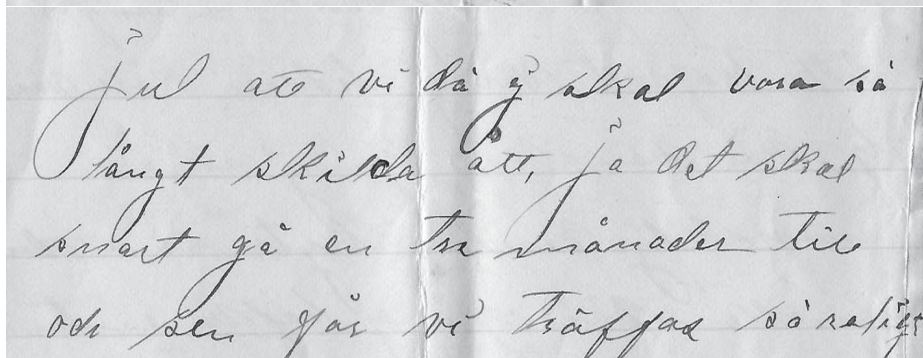 jul att vi då ij skal vara så
långt skilda ått, ja det skal
snart gå en tre månader till
och sen får vi träffas så